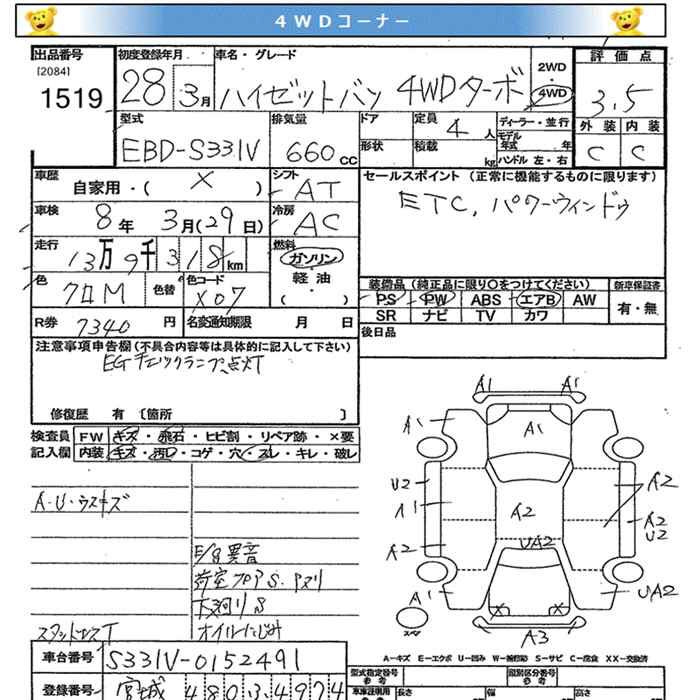 4WDコーナー
出品番号
[2084]
1519
初度登録年月
28
3月
車名・グレード
ハイゼットバン 4WDターボ
2WD
・
4WD
評価点
3.5
外装
内装
C
C
型式
EBD-S331V
排気量
660cc
ドア
形状
定員
4人
積載
kg
ディーラー・並行
モデル
年式 年
ハンドル 左・右
車歴
自家用・( X )
シフト
AT
セールスポイント (正常に機能するものに限ります)
ETC, パワーウィンドウ
車検
8年 3月(29日)
冷房
AC
走行
13万9千318km
燃料
ガソリン
・
軽油
・
( )
色
クロM
色替
色コード
X07
装備品 (純正品に限り○をつけてください)
PS PW ABS エアB AW
SR ナビ TV カワ
新車保証書
有・無
R券 7340円
名変通知期限 月 日
後日品
注意事項申告欄(不具合内容等は具体的に記入して下さい)
EGチェックランプ点灯
修復歴 有 〔箇所 〕
検査員
記入欄
FW キズ・飛石・ヒビ割・リペア跡・×要
内装 キズ・汚れ・コゲ・穴・スレ・キレ・破レ
A・U・ウスキズ
E/g異音
荷室フロアS.アメリ
下廻りS
スタッドレスT
オイルにじみ
A1 A1
A1 A1
U2
A1 A2
A2 A2
U2
A2 UA2
A1 UA2
X X
スペア
A3
車台番号 S331V-0152491
登録番号 宮城 480 ま 4974
A-キズ E-エクボ U-凹み W-補修跡 S-サビ C-腐食 XX-交換済
型式指定番号
参考
類別区分番号
参考
車庫証明用
長さ
幅
高さ